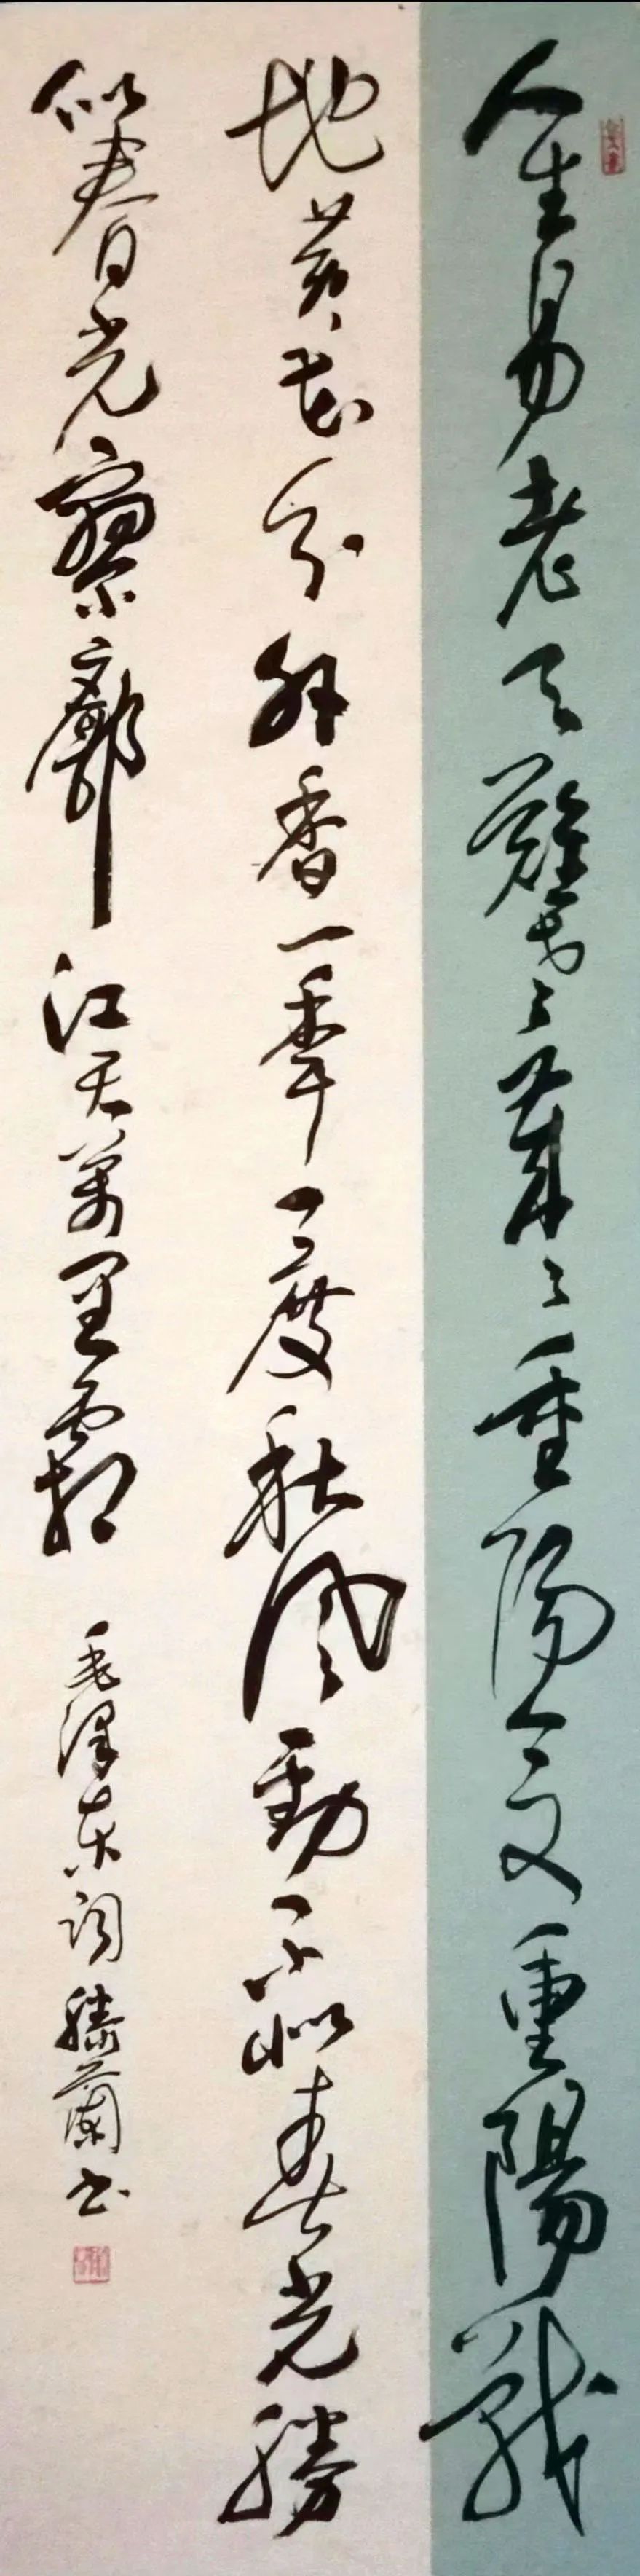 人生易老天難老歲々重陽今又重陽戰
地黄花分外香一年一度秋風勁不似春光勝
似春光寥廓江天萬里霜
毛澤东詞滕蘭书